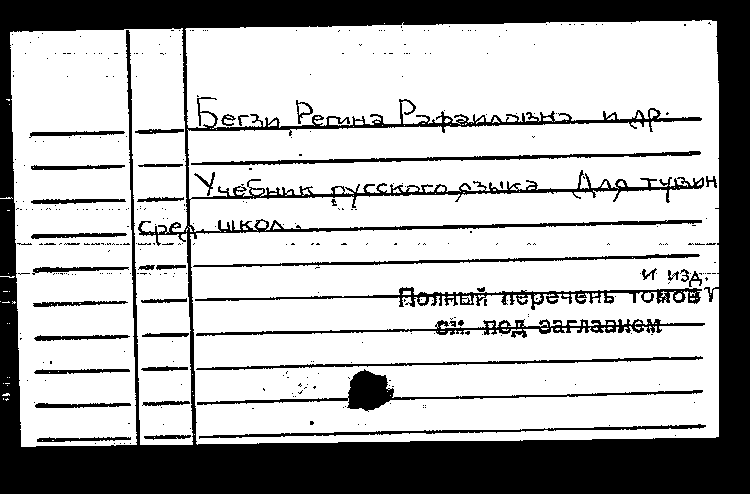 Бегзи Регина Рафаиловна и др.
Учебник русского языка Для тувин
сред. школ.
и изд.
Полный перечень томов
см. под заглавием